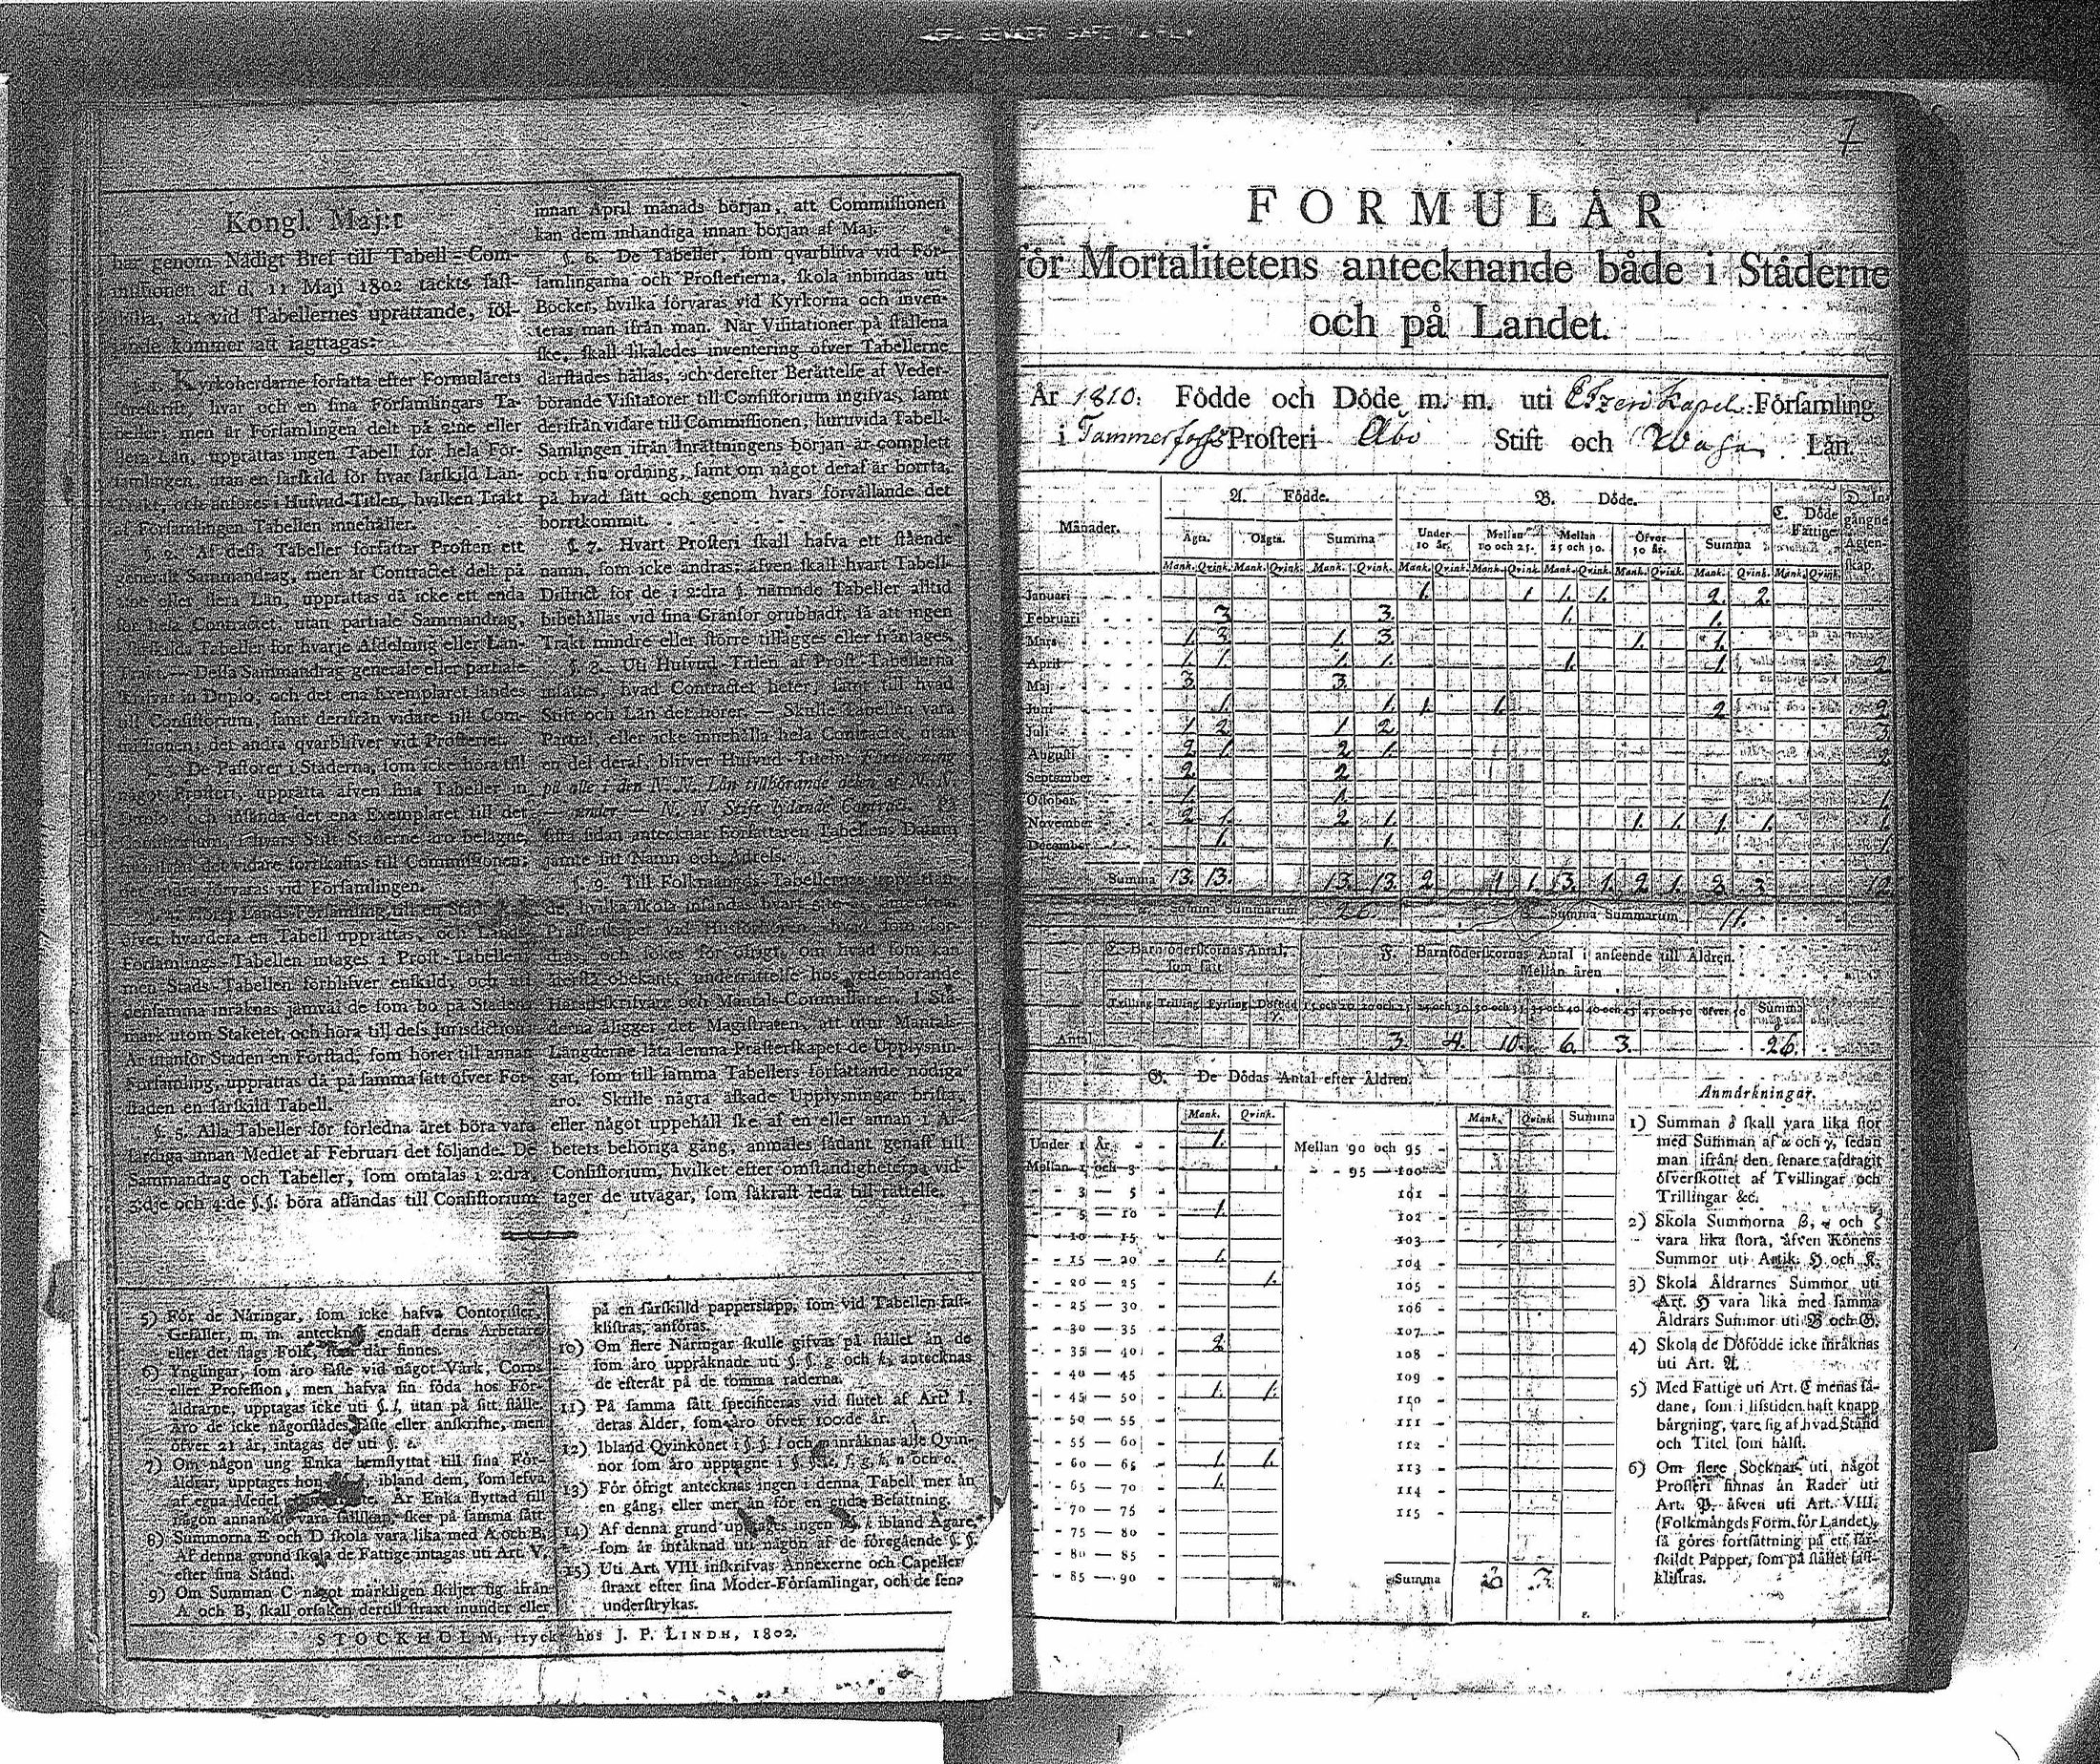 Kongl. Maj:t
har genom Nådigt Bref till Tabell-Com-
missionen af d. 11 Maji 1802 täckts fast-
ställa, att vid Tabellernes uprättande, föl-
jande kommer att iagttagas:
§. 1. Kyrkoherdarne författa efter Formulärets
föreskrift, hvar och en sina Församlingars Ta-
beller; men är Församlingen delt på 2:ne eller
flera Län, upprättas ingen Tabell för hela För-
samlingen, utan en särskild för hvar särskild Län-
Trakt, och anföres i Hufvud-Titlen, hvilken Trakt
af Församlingen Tabellen innehåller.
§. 2. Af dessa Tabeller författar Prosten ett
generalt Sammandrag, men är Contractet delt på
2:ne eller flera Län, upprättas då icke ett enda
för hela Contractet, utan partiale Sammandrag,
särskilda Tabeller för hvarje Afdelning eller Län-
Trakt. — Dessa Sammandrag generale eller partiale
skrivas in Duplo, och det ena Exemplaret sändes
till Consistorium, samt derifrån vidare till Com-
missionen; det andra qvarblifver vid Prosteriet.
§. 3. De Pastorer i Städerna, som icke höra till
något Prosteri, upprätta äfven sina Tabeller in
Duplo, och insända det ena Exemplaret till det
Consistorium, i hvars Stift Städerne äro belägne,
hvarifrån det vidare fortskaffas till Commissionen;
det andra förvaras vid Församlingen.
§. 4. Hörer Lands-Församling till en Stad,
öfver hvardera en Tabell upprättas, och Lands-
Församlings-Tabellen intages i Prost-Tabellen;
men Stads-Tabellen förblifver enskild, och uti
densamma inräknas jämväl de som bo på Stadens
mark utom Staketet, och höra till dess Jurisdiction.
Är utanför Staden en Förstad, som hörer till annan
Församling, upprättas då på samma sätt öfver För-
staden en särskild Tabell.
§. 5. Alla Tabeller för förledna året böra vara
färdiga innan Medlet af Februari det följande. De
Sammandrag och Tabeller, som omtalas i 2:dra,
3:dje och 4:de §.§. böra afsändas till Consistorium
innan April månads början, att Commissionen
kan dem inhändiga innan början af Maj.
§. 6. De Tabeller, som qvarblifva vid För-
samlingarna och Prosterierna, skola inbindas uti
Böcker, hvilka förvaras vid Kyrkorna och inven-
teras man ifrån man. När Visitationer på ställena
ske, skall likaledes inventering öfver Tabellerne
därstädes hållas, och derefter Berättelse af Veder-
börande Visitatorer till Consistorium ingifvas, samt
derifrån vidare till Commissionen, huruvida Tabell-
Samlingen ifrån Inrättningens början är complett
och i sin ordning, samt om något deraf är borrta,
på hvad sätt och genom hvars förvållande det
borrtkommit.
§. 7. Hvart Prosteri skall hafva ett stående
namn, som icke ändras; äfven skall hvart Tabell-
District för de i 2:dra §. nämnde Tabeller alltid
bibehållas vid sina Gränsor orubbadt, så att ingen
Trakt mindre eller större tillägges eller fråntages.
§. 8. Uti Hufvud-Titlen af Prost-Tabellerna
införes, hvad Contractet heter, samt till hvad
Stift och Län det hörer. — Skulle Tabellen vara
Partial, eller icke innehålla hela Contractet, utan
en del deraf, blifver Hufvud-Titeln: Förteckning
på alle i den N. N. Län tillhörande delen af N. N.
— under — N. N. Stift lydande Contract. På
sista sidan antecknar Författaren Tabellens Datum
jämte sitt Namn och Adress.
§. 9. Till Folkmängds-Tabellernas upprättan-
Prästerskapet vid Husförhören
Häradsskrifvare och Mantals-Commissarier. I Stä-
derna åligger det Magistraten, att utur Mantals-
Längderne låta lemna Prästerskapet de Upplysnin-
gar, som till samma Tabellers författande nödiga
äro. Skulle några äskade Upplysningar brista,
eller något uppehåll ske af en eller annan i Ar-
betets behöriga gång, anmäles sådant genast till
Consistorium, hvilket efter omständigheterna vid-
tager de utvägar, som säkrast leda till rättelse.
5) För de Näringar, som icke hafva Contorister,
Gesäller, m. m. antecknas endast deras Arbetare
eller det slags Folk, som där finnes.
6) Ynglingar, som äro fäste vid något Värk, Corps
eller Profession, men hafva sin föda hos För-
äldrarne, upptagas icke uti §. l, utan på sitt ställe.
Äro de icke någorstädes fäste eller anskrifne, men
öfver 21 år, intagas de uti §. e.
7) Om någon ung Enka hemflyttat till sina För-
äldrar, upptages hon ibland dem, som lefva
af egna Medel Är Enka flyttad till
någon annan att vara sällskap, sker på samma sätt.
8) Summorna E och D skola vara lika med A och B.
Af denna grund skola de Fattige intagas uti Art. V.
efter sina Stånd.
9) Om Summan C något märkligen skiljer sig ifrån
A och B, skall orsaken dertill straxt inunder eller
på en särskilld papperslapp, som vid Tabellen fast-
klistras, anföras.
10) Om flere Näringar skulle gifvas på stället än de
som äro uppräknade uti §. §. g och k, antecknas
de efteråt på de tomma raderna.
11) På samma sätt specificeras vid slutet af Art. I.
deras Ålder, som äro öfver 100:de år.
12) Ibland Qvinkönet i §. §. l och m inräknas alle Qvin-
nor som äro upptagne i §. §. e, f, g, h, n och o.
13) För öfrigt antecknas ingen i denna Tabell mer än
en gång, eller mer än för en enda Befattning.
14) Af denna grund upptages ingen ibland Ägare,
som är inräknad uti någon af de föregående §. §.
15) Uti Art. VIII inskrifvas Annexerne och Capeller
straxt efter sina Moder-Församlingar, och de sena
understrykas.
STOCKHOLM, tryckt hos J. P. LINDH, 1802.
7
FORMULÄR
för Mortalitetens antecknande både i Städerne
och på Landet.
År 1810: Födde och Döde m. m. uti Etzeri Kapel: Församling
i Tammerfors Prosteri Åbo Stift och Wasa Län.
A. Födde. B. Döde. C. Döde Fattige D. Ingångne Ägtenskap.
Månader. Ägta. Oägta. Summa Under 10 år. Mellan 10 och 25. Mellan 25 och 50. Öfver 50 år. Summa
Mank. Qvink. Mank. Qvink. Mank. Qvink. Mank. Qvink. Mank. Qvink. Mank. Qvink. Mank. Qvink. Mank. Qvink. Mank. Qvink.
Januari 1. 1 1. 1. 2. 2.
Februari 3 3 1. 1.
Mars 1. 3 1. 3. 1. 1.
April 1. 1. 1. 1. 1. 1 2
Maj 3 3
Juni 1. 1. 1. 1. 2 2
Juli 1 2 1 2 3
Augusti 2 1. 2 1. 2
September 2 2
October 1. 1. 1.
November 2 1. 2 1. 1. 1. 1. 1. 1.
December 1. 1. 1.
Summa 13. 13. 13. 13. 2 1 1. 3. 1. 2 1. 8 3 12
Summa Summarum 26. Summa Summarum 11.
E. Barnföderskornas Antal, som fått F. Barnföderskornas Antal i anseende till Åldren.
Mellan åren
Tvilling Trilling Fyrling Dödfödd 15 och 20 20 och 25 25 och 30 30 och 35 35 och 40 40 och 45 45 och 50 öfver 50 Summa
Antal 3 4. 10. 6. 3. 26.
G. De Dödas Antal efter Åldren.
Mank. Qvink. Mank. Qvink. Summa
Under 1 År 1. Mellan 90 och 95
Mellan 1 och 3 95 — 100
3 — 5 101
5 — 10 1. 102
10 — 15 103
15 — 20 1. 104
20 — 25 1. 105
25 — 30 106
30 — 35 107
35 — 40 2 108
40 — 45 109
45 — 50 1. 1. 110
50 — 55 111
55 — 60 112
60 — 65 1. 1. 113
65 — 70 1. 114
70 — 75 115
75 — 80
80 — 85
85 — 90 Summa 8 3
Anmärkningar.
1) Summan δ skall vara lika stor
med Summan af α och γ, sedan
man ifrån den senare afdragit
öfverskottet af Tvillingar och
Trillingar &c.
2) Skola Summorna β, ε och ζ
vara lika stora, äfven Könens
Summor uti Artik. H och K.
3) Skola Åldrarnes Summor uti
Art. H vara lika med samma
Åldrars Summor uti B och G.
4) Skola de Dödfödde icke inräknas
uti Art. A.
5) Med Fattige uti Art. C menas så-
dane, som i lifstiden haft knapp
bärgning, vare sig af hvad Stånd
och Titel som hälst.
6) Om flere Socknar uti något
Prosteri finnas än Rader uti
Art. P. äfven uti Art. VIII.
(Folkmängds Form. för Landet),
så göres fortsättning på ett sär-
skildt Papper, som på stället fast-
klistras.